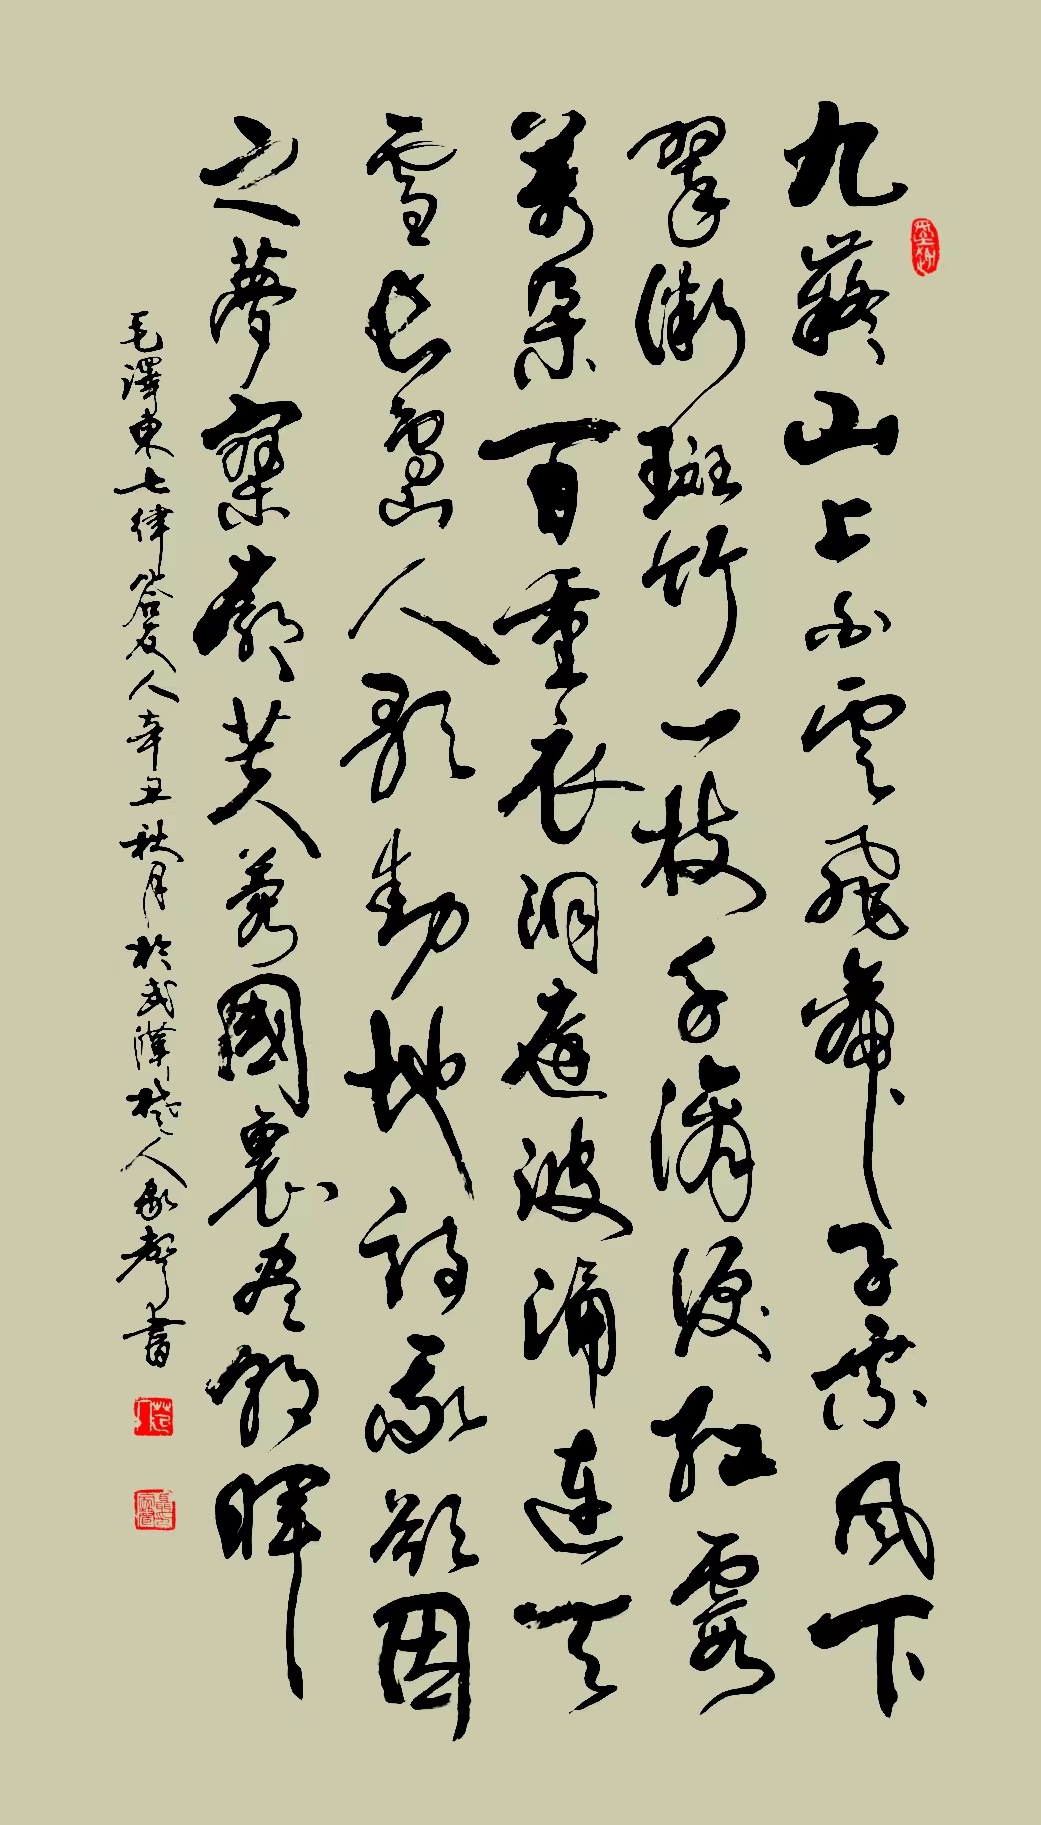 九嶷山上白雲飛帝子乘風下
翠微斑竹一枝千滴淚紅霞
萬朵百重衣洞庭波涌連天
雪長島人歌動地詩我欲因
之夢寥廓芙蓉國裏尽朝暉
毛澤東七律答友人辛丑秋月於武漢楚人家聲書